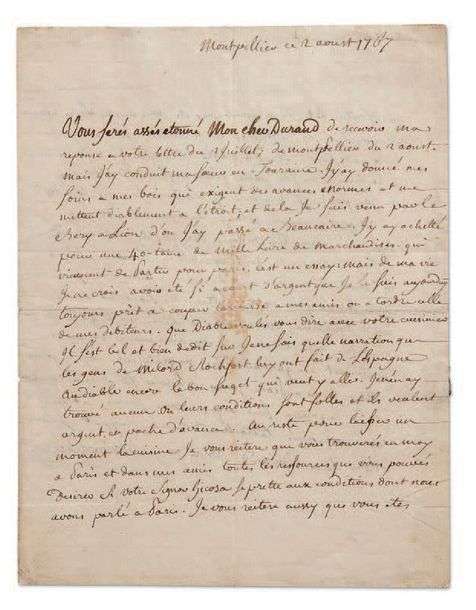 Montpellier ce 2 aoust 1767
Vous serés assés etonné Mon cher Durand de recevoir ma
reponse a votre lettre du 2 Juillet, de montpellier du 2 aoust.
mais J'ay conduit ma en Touraine J'y ay donné mes
soins a mes bois qui exigent des avances enormes et me
mettent diablement a l'etroit, et de la Je suis venu par le
a Lion d'ou J'ay passé a Beaucaire, J'y ay achetté
pour une 40taine de mille livre de marchandises qui
viennent de partir pour c'est un essay: mais de ma vie
Je ne crois avoir eté si a court d'argent que Je le suis aujourdhuy
toujours prêt a couper a mes amis ou a l'ordre
de mes debiteurs. que Diable voulés vous dire avec votre cuisinier
Il s'est bel et bien dedit sur Je ne sais quelle narration que
les gens de Milord Rochfort luy ont fait de L'espagne
au diable encore le bon sujet qui veut y aller. Je n'en ay
trouvé aucun ou leurs conditions sont folles et ils veulent
argent en poche d'avance. au reste pour laisser un
moment la cuisine Je vous reitere que vous trouverés en moy
a Paris et dans mes amis toutes les ressources que vous pouvés
Desirer si votre Signor se prette aux conditions dont nous
avons parlé a Paris. Je vous reitere aussy que vous etes